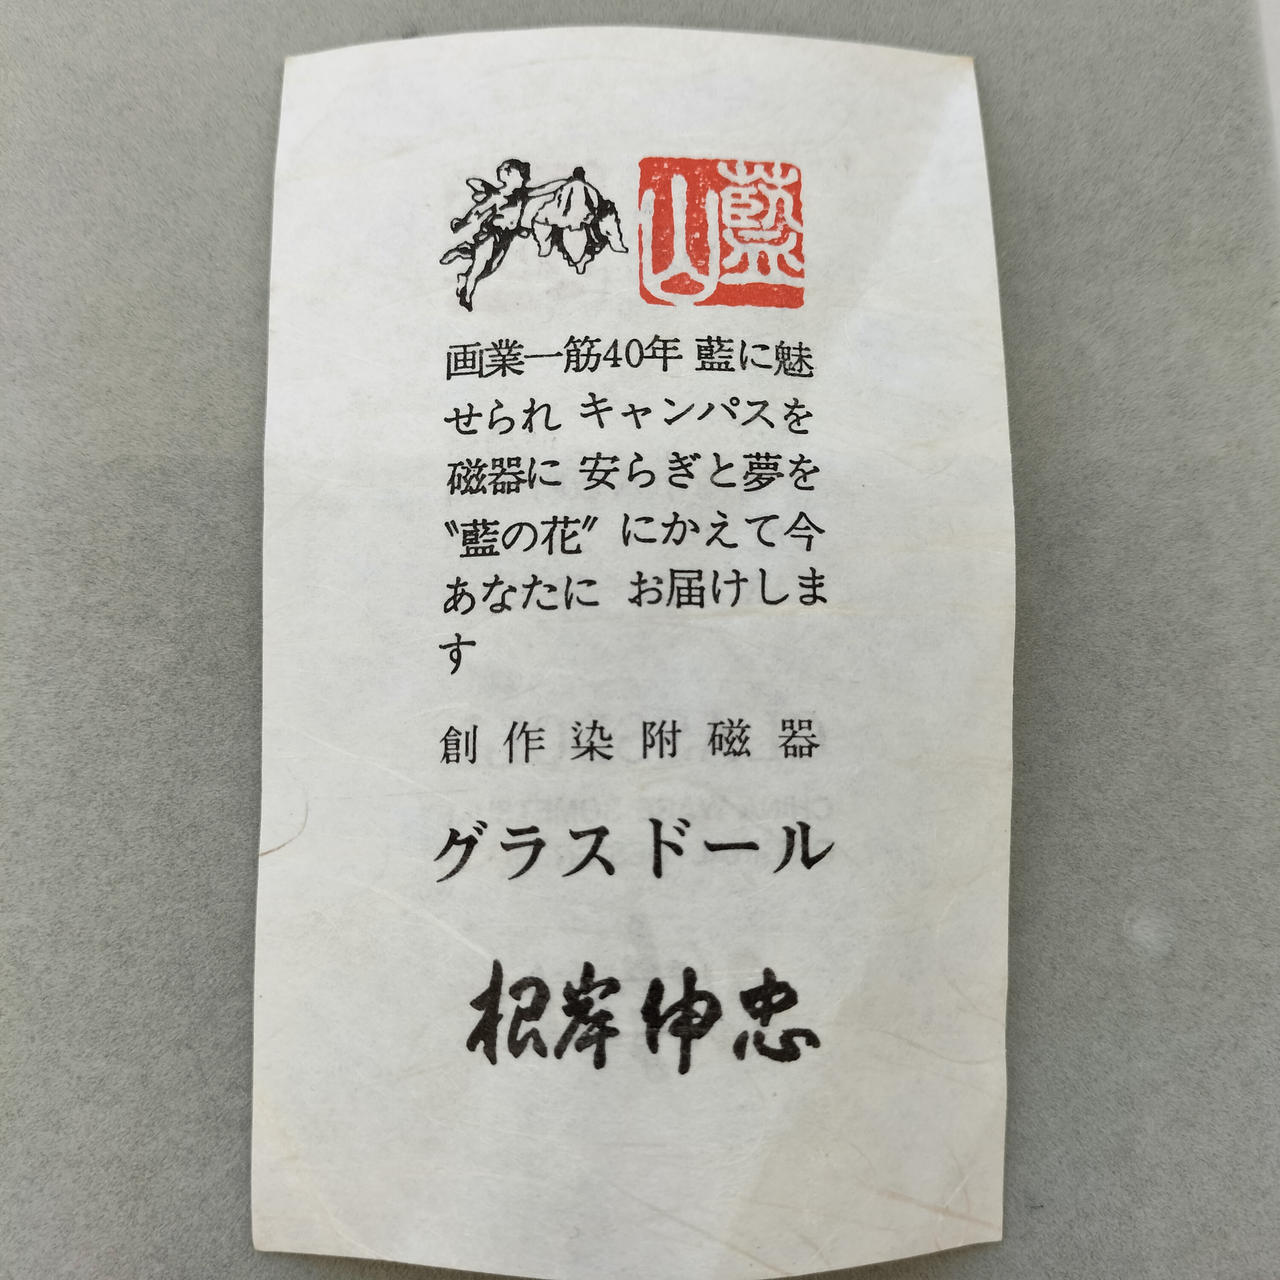 藍山
画業一筋40年 藍に魅
せられ キャンパスを
磁器に 安らぎと夢を
〝藍の花〞にかえて今
あなたに お届けしま
す
創作染附磁器
グラスドール
根岸伸忠